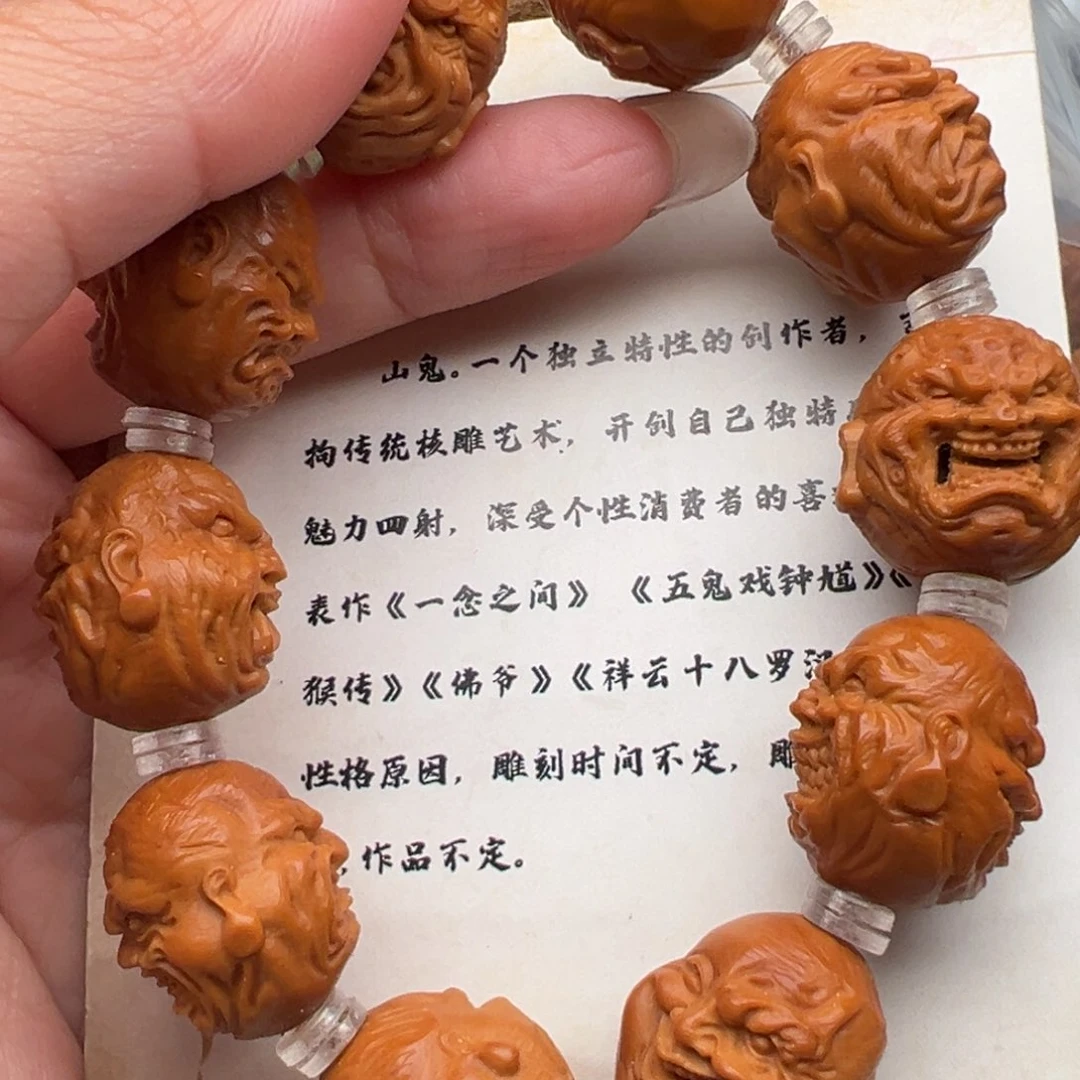 山鬼。一个独立特性的创作者，
拘传统核雕艺术，开创自己独特
魅力四射，深受个性消费者的喜
表作《一念之间》《五鬼戏钟馗》《
猴传》《佛爷》《祥云十八罗汉
性格原因，雕刻时间不定，雕
，作品不定。